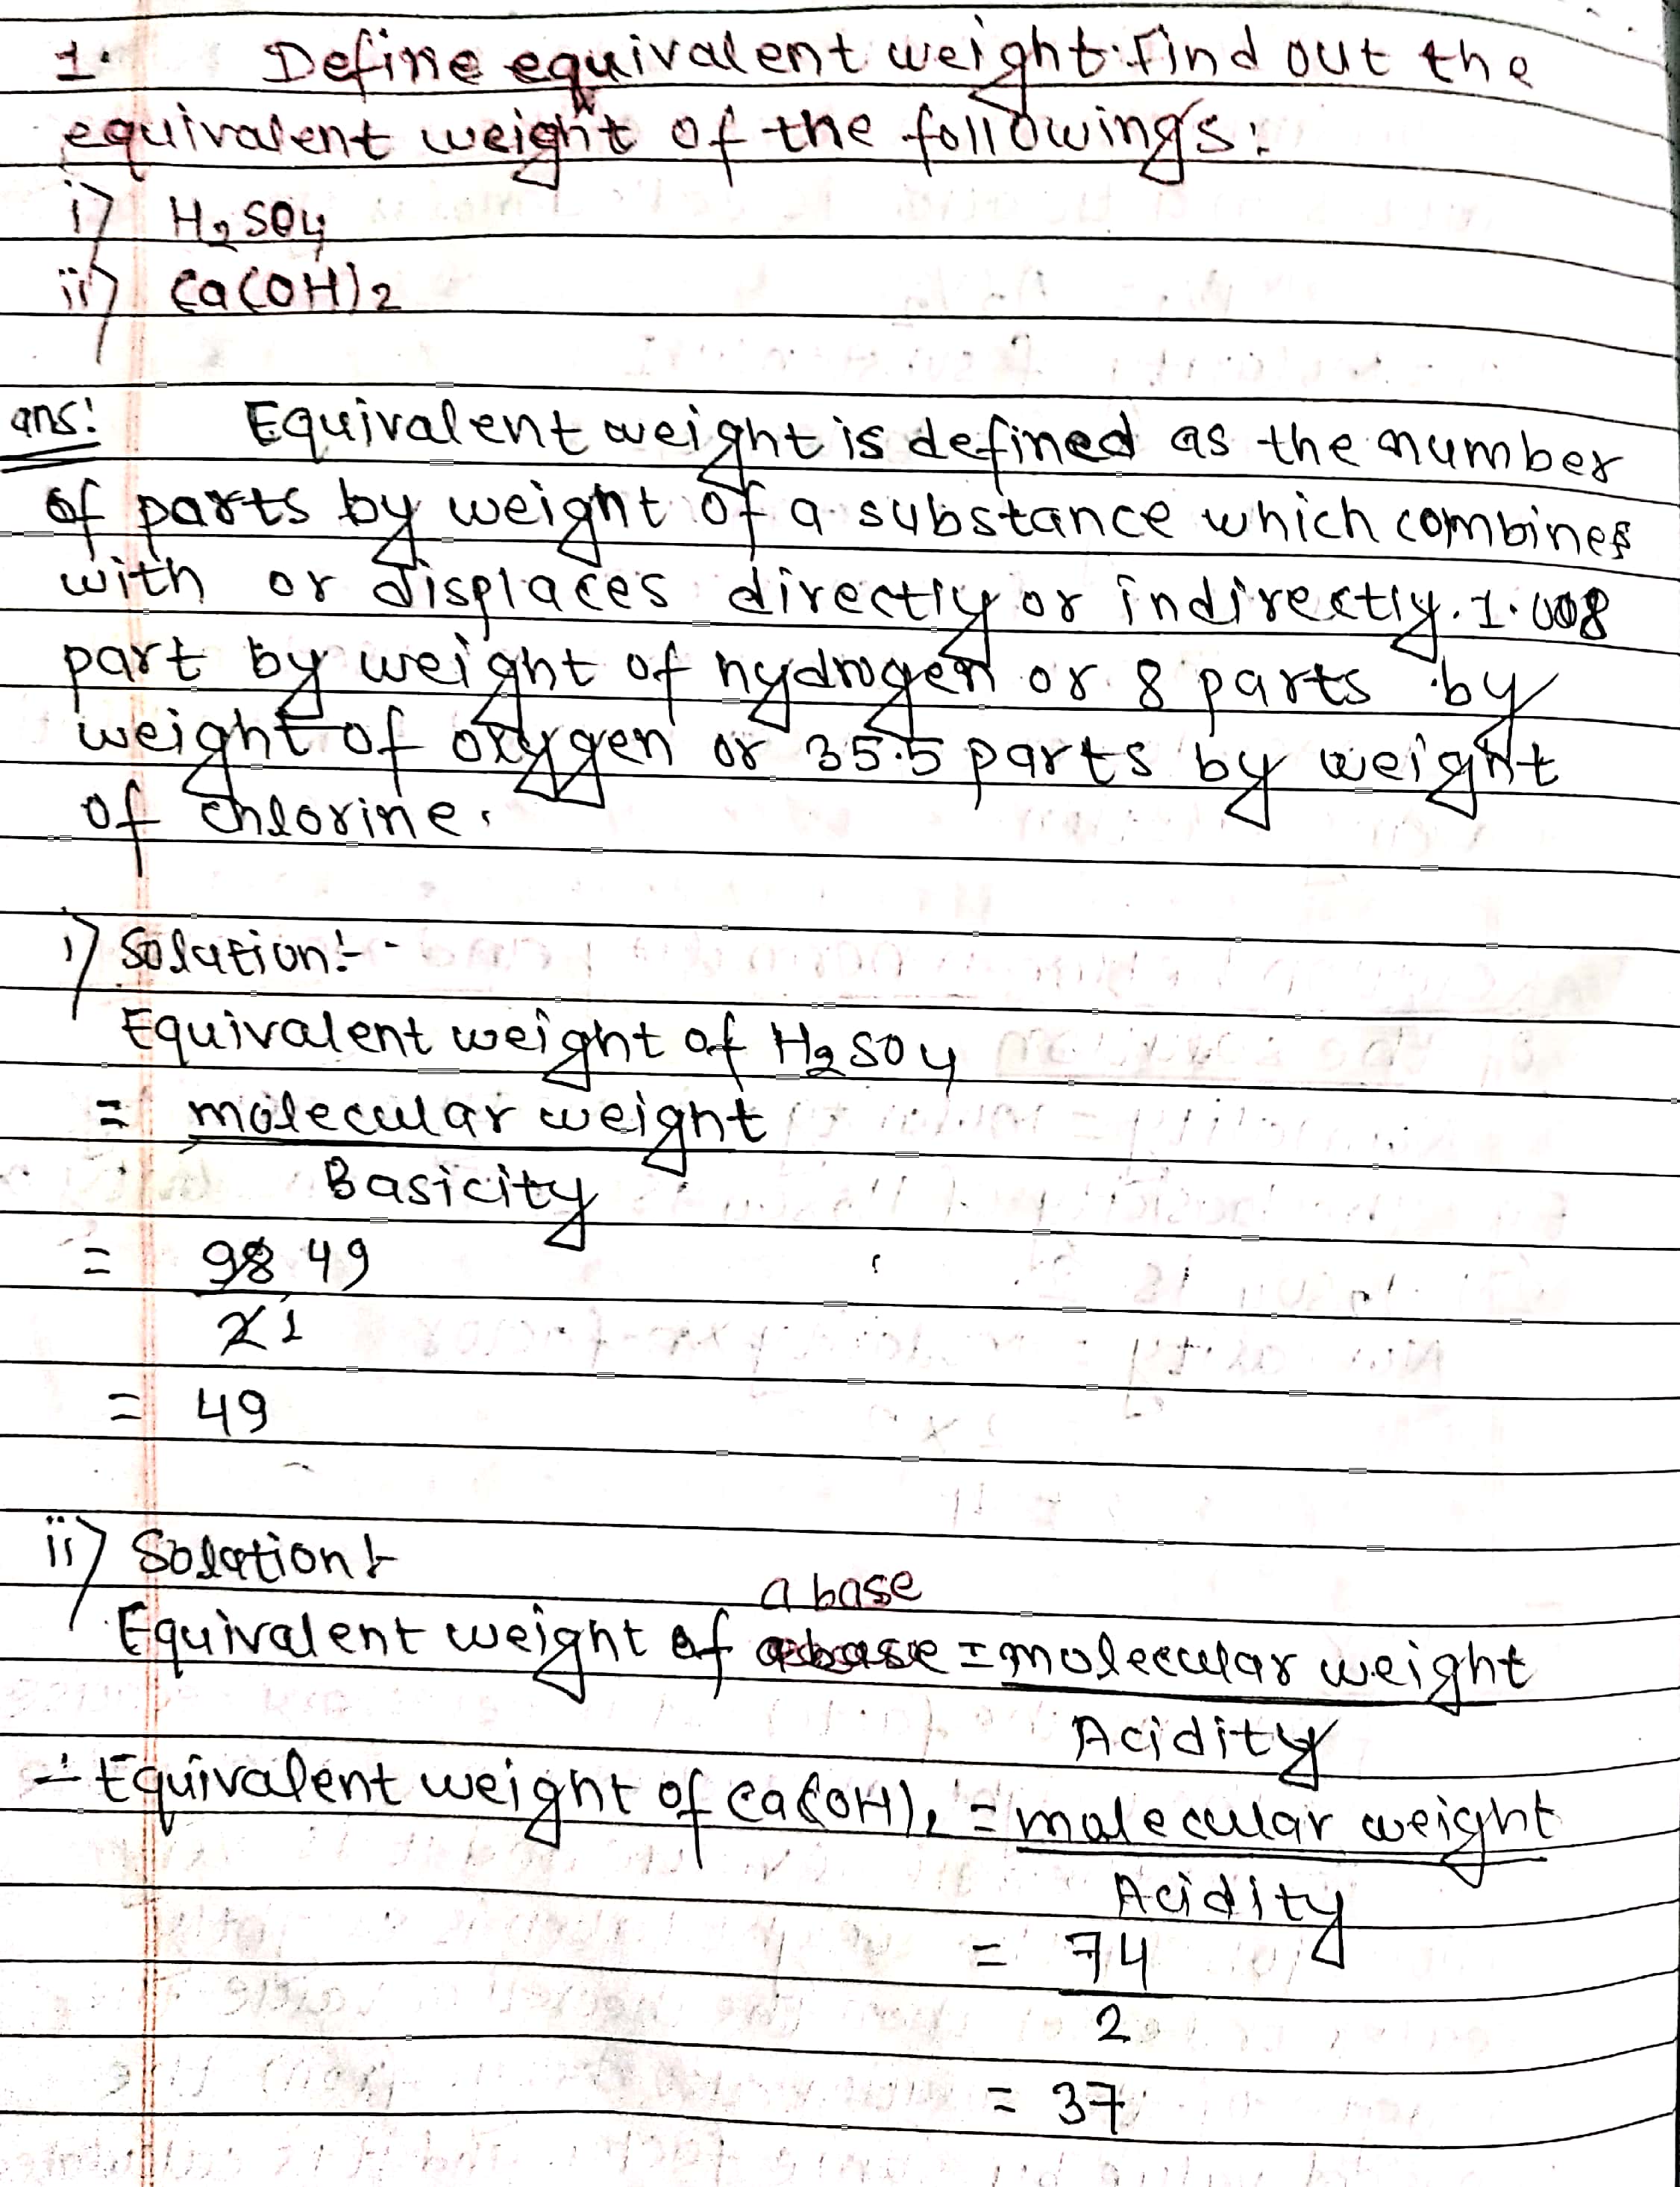 1. Define equivalent weight. Find out the
equivalent weight of the followings:
i) H₂SO₄
ii) Ca(OH)₂
ans: Equivalent weight is defined as the number
of parts by weight of a substance which combines
with or displaces directly or indirectly. 1.008
part by weight of hydrogen or 8 parts by
weight of oxygen or 35.5 parts by weight
of chlorine.
i) Solution:-
Equivalent weight of H₂SO₄
= molecular weight
Basicity
= 98 49
2 1
= 49
ii) Solution:-
a base
Equivalent weight of abase = molecular weight
Acidity
∴ Equivalent weight of Ca(OH)₂ = molecular weight
Acidity
= 74
2
= 37